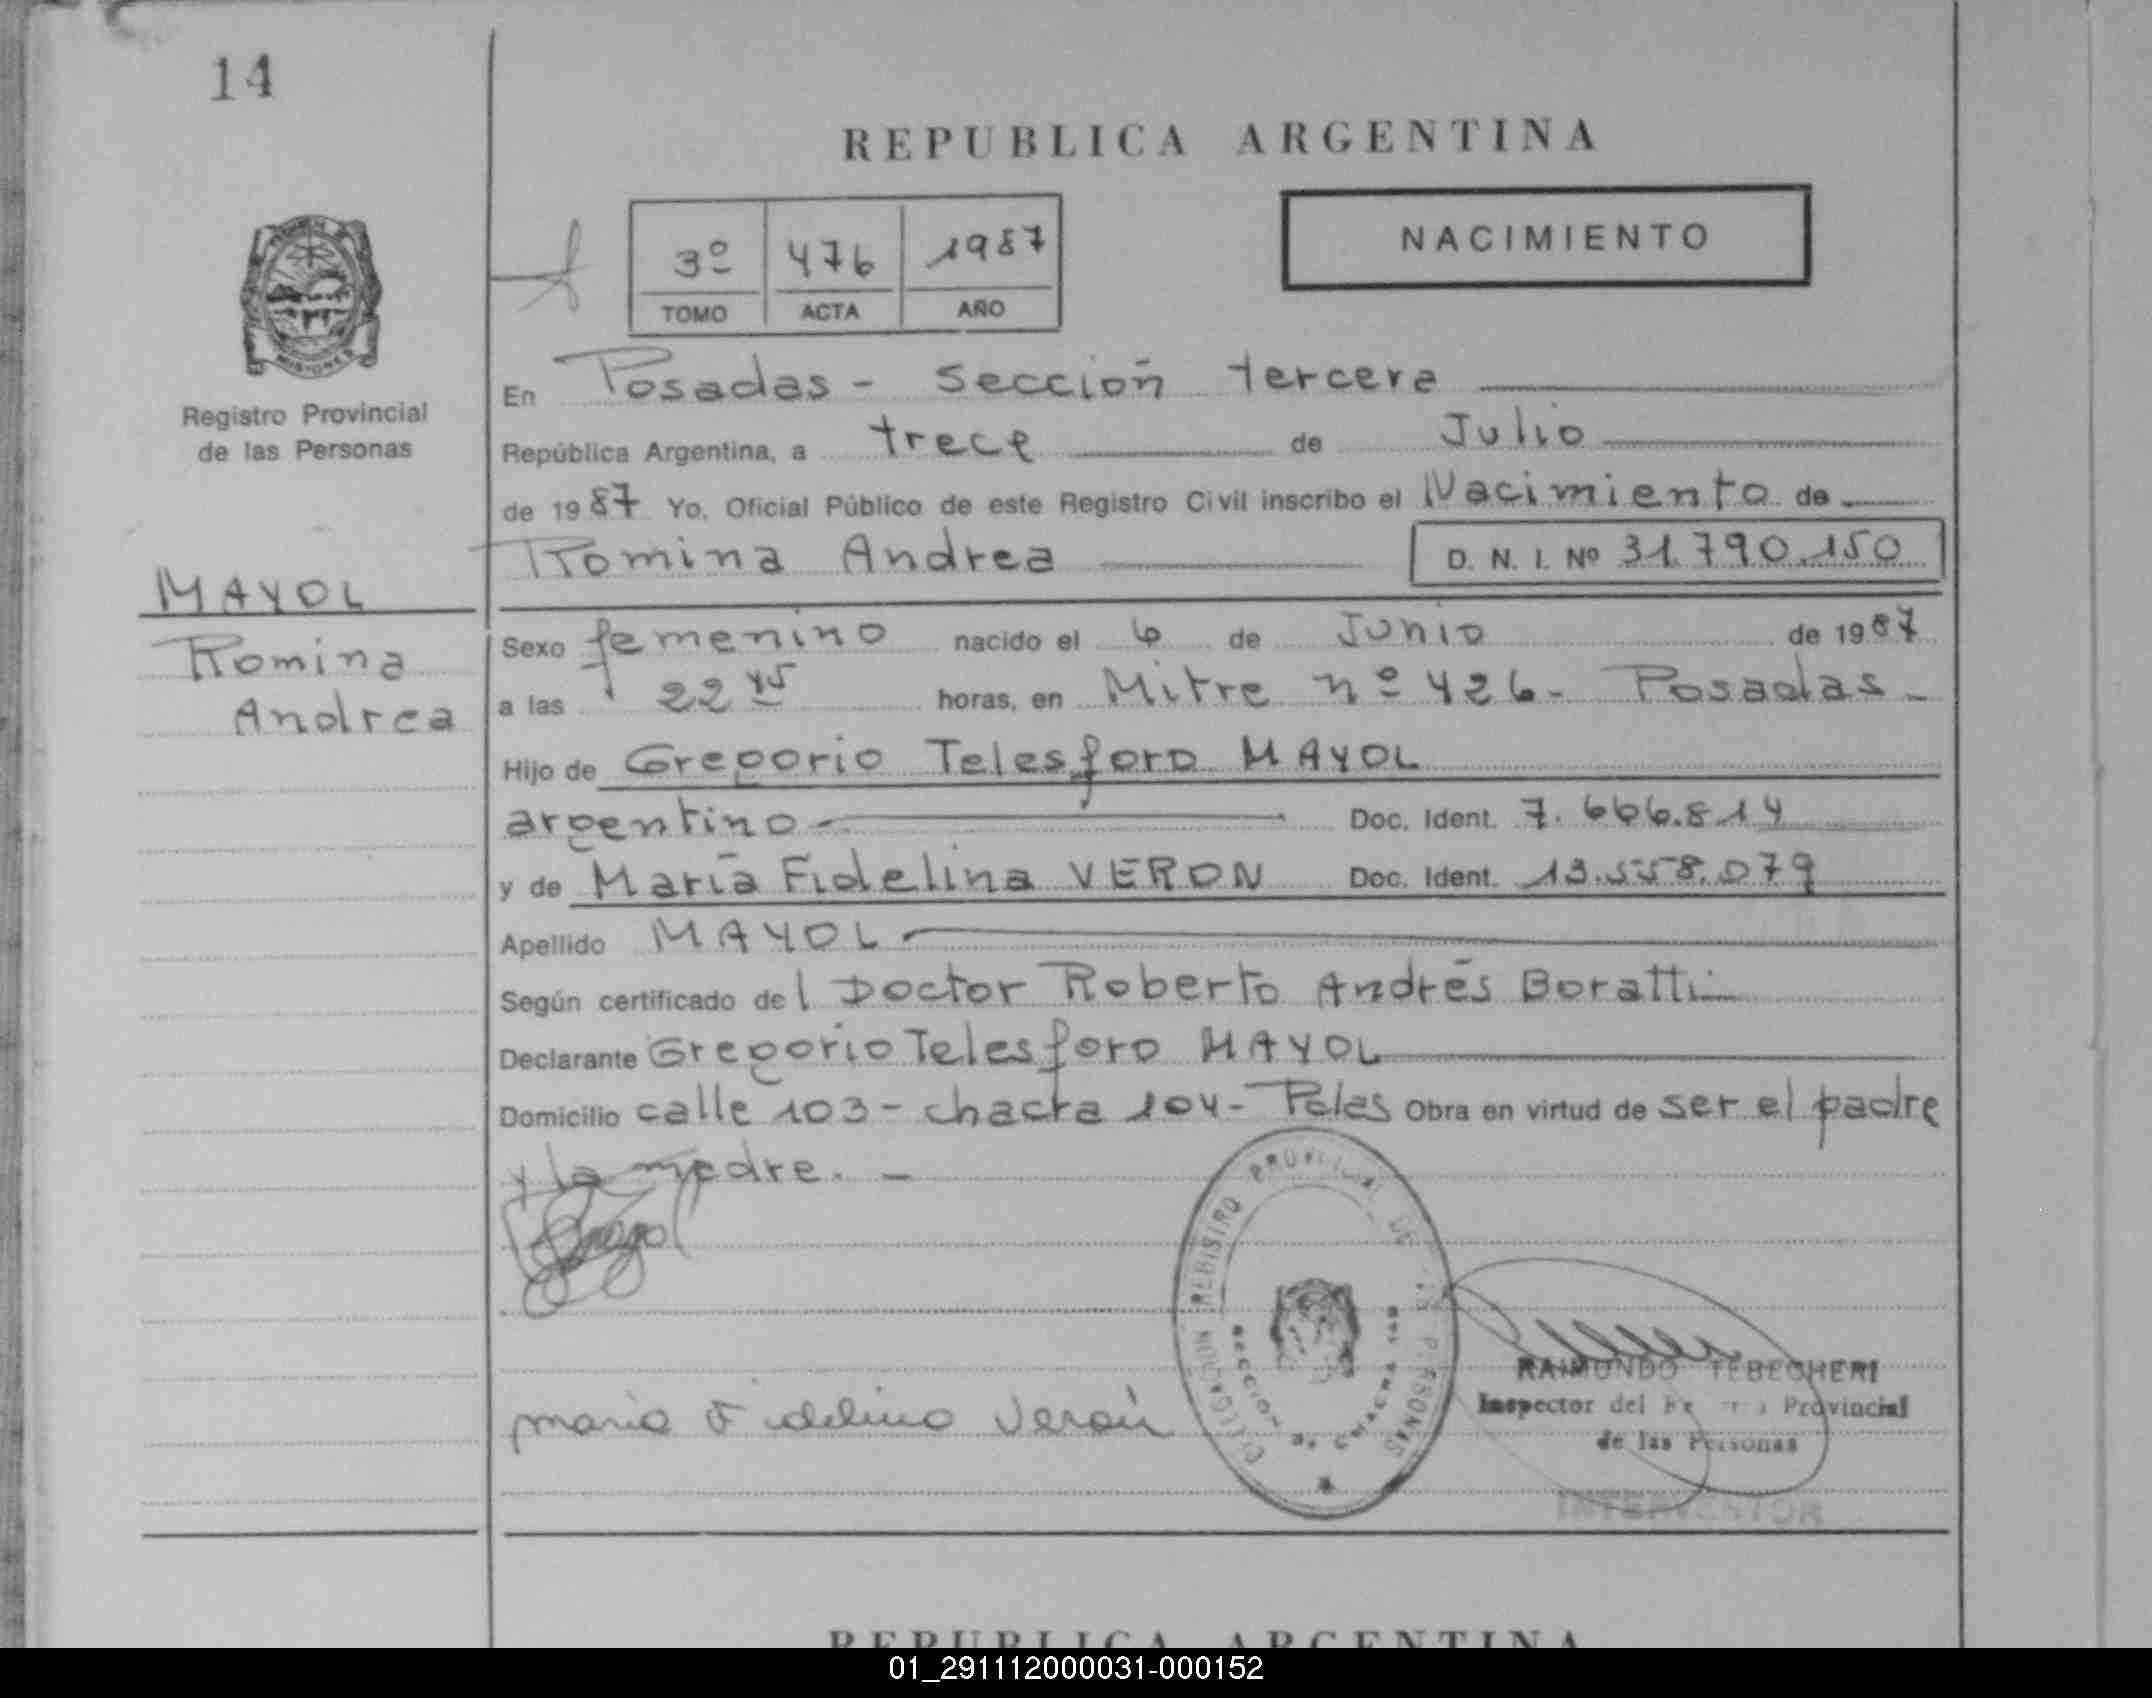 14
REPUBLICA ARGENTINA
3º 476 1987
TOMO ACTA AÑO
NACIMIENTO
MISIONES
Registro Provincial
de las Personas
MAYOL
Romina
Andrea
En Posadas - Sección tercera
República Argentina, a trece de Julio
de 1987 Yo. Oficial Público de este Registro Civil inscribo el Nacimiento de
Romina Andrea D. N. I. Nº 31.790.150
Sexo femenino nacido el 6 de Junio de 1987
a las 22 45 horas, en Mitre nº 426 - Posadas -
Hijo de Gregorio Telesforo MAYOL
argentino Doc. Ident. 7.666.814
y de María Fidelina VERON Doc. Ident. 13.558.079
Apellido MAYOL
Según certificado del Doctor Roberto Andrés Boratti
Declarante Gregorio Telesforo MAYOL
Domicilio calle 103 - chacra 104 - Pdas Obra en virtud de ser el padre
y la madre. -
REGISTRO PROVINCIAL DE LAS PERSONAS
SECCION CHACRA
maria Fidelina Verón
RAIMUNDO TEBEGHERI
Inspector del Provincial
de las Personas
INTERVENTOR
REPUBLICA ARGENTINA
01_291112000031-000152